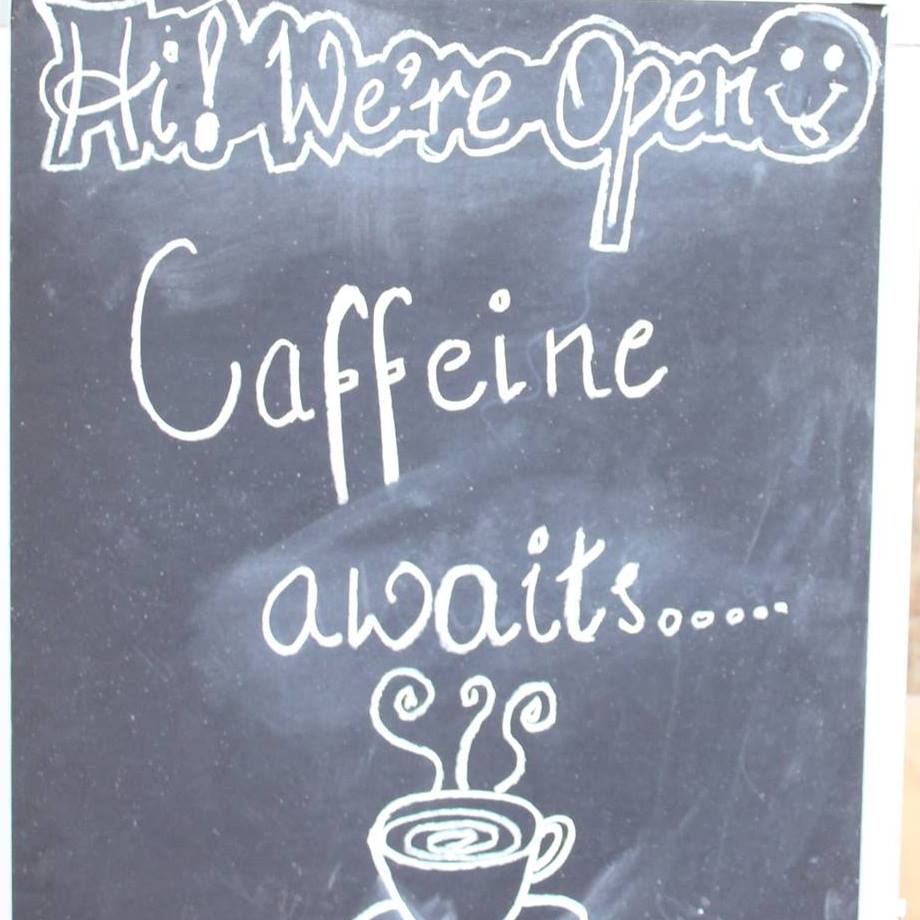 Hi! We're Open
Caffeine
awaits......